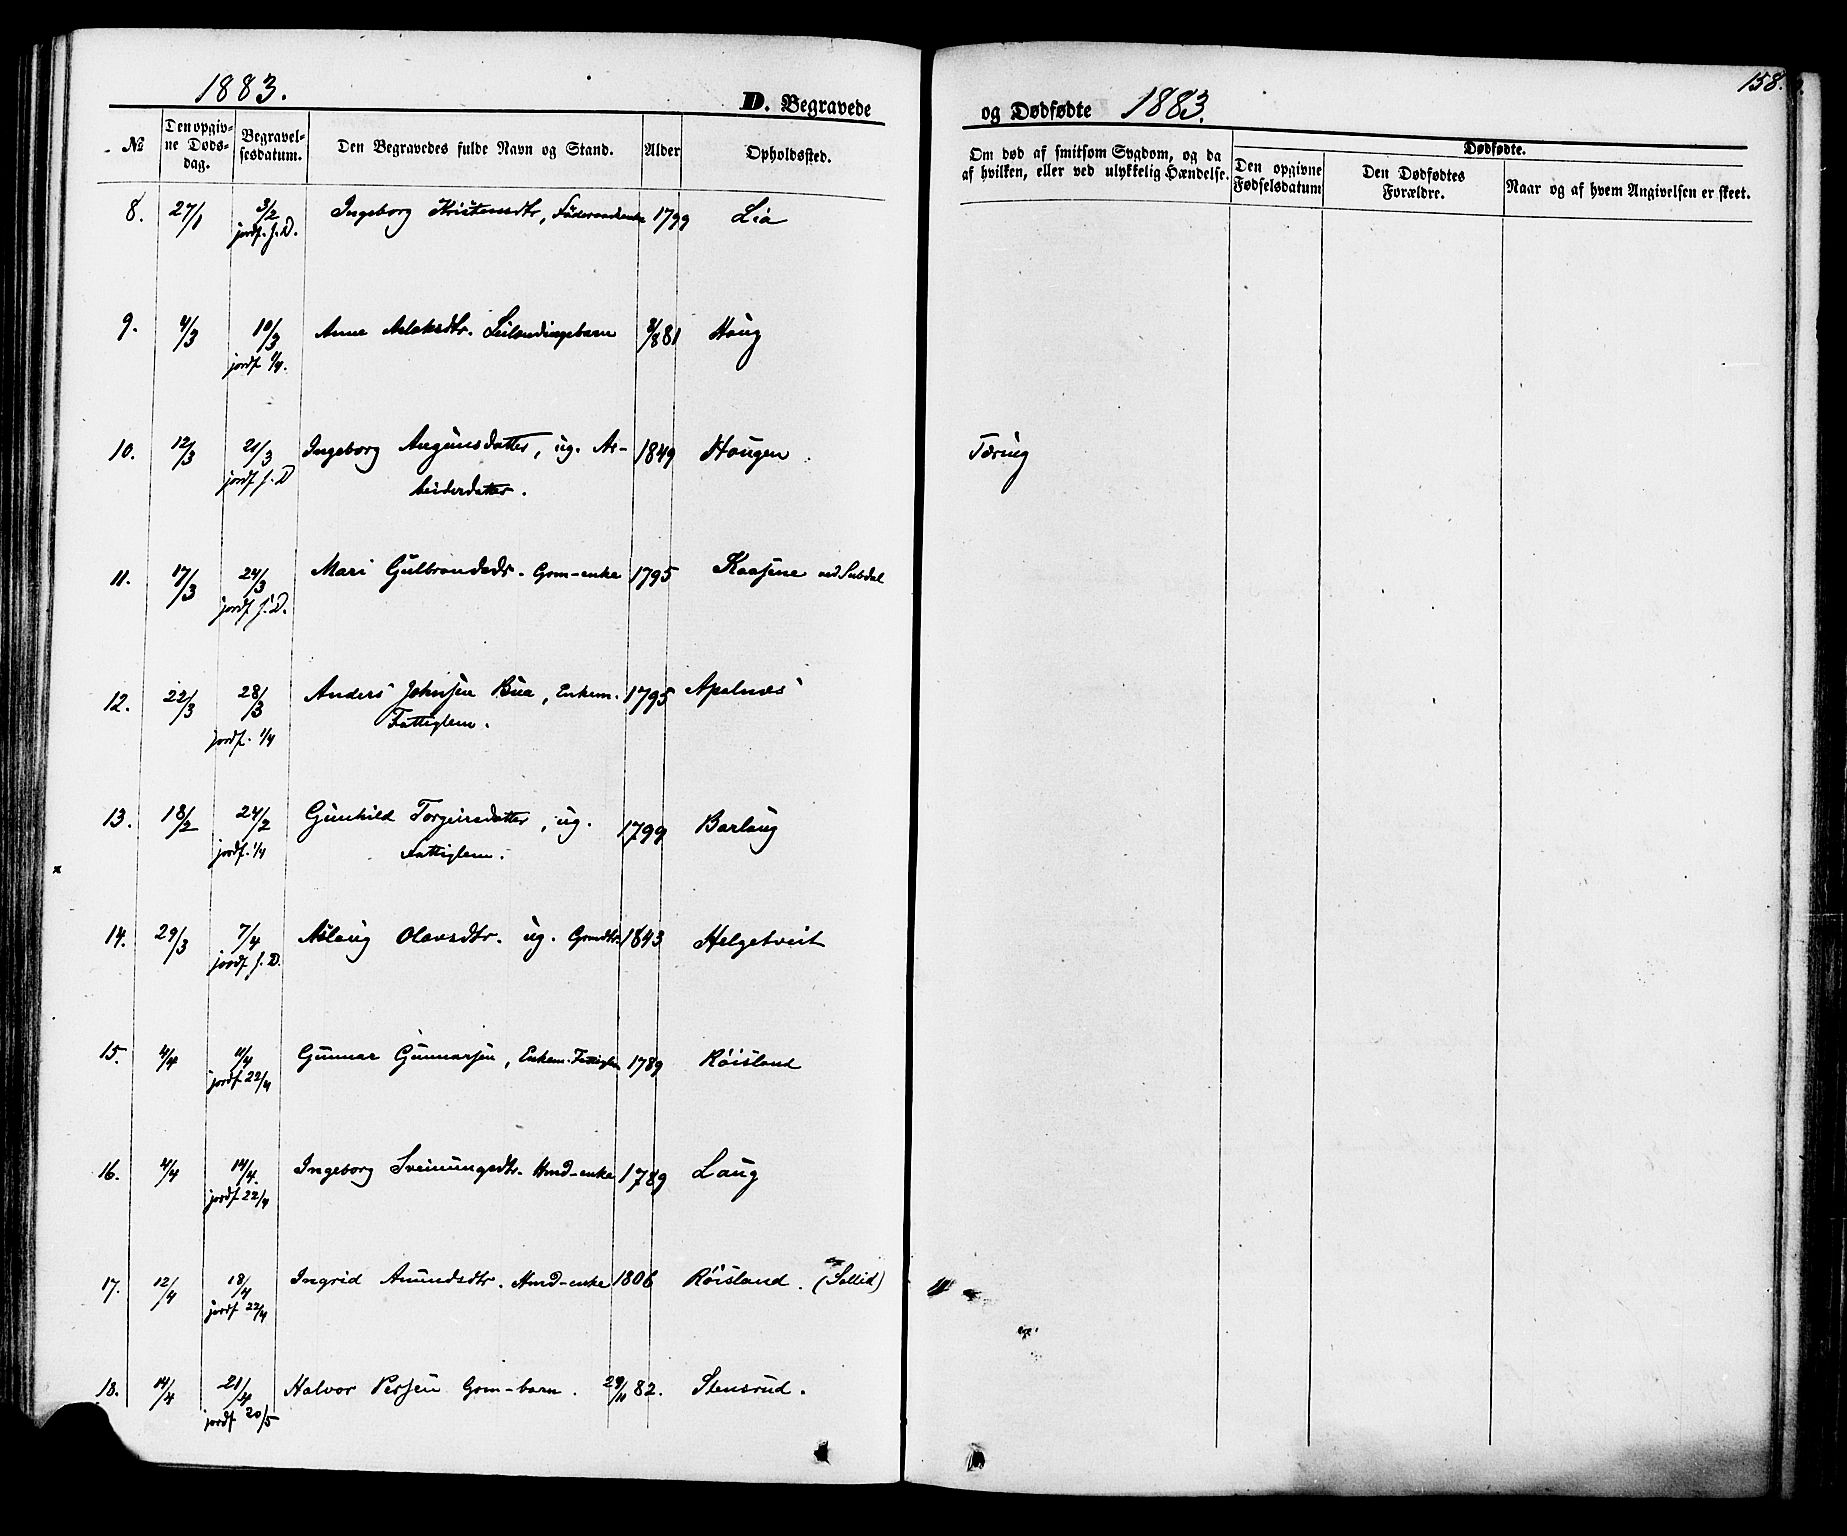 1883.
D. Begravede
og Dødfødte 1883.
158.
№
Den opgiv-
ne Døds-
dag.
Begravel-
sesdatum.
Den Begravedes fulde Navn og Stand.
Alder
Opholdssted.
Om død af smitsom Sygdom, og da
af hvilken, eller ved ulykkelig Hændelse.
Dødfødte.
Den opgivne
Fødselsdatum
Den Dødfødtes
Forældre.
Naar og af hvem Angivelsen er skeet.
8. 27/1 3/2 Ingeborg Kristensdtr, Föderaadsenke 1799 Lia
jordf. s. D.
9. 4/3 10/3 Anne Aslaksdtr. Leilændingsbarn 8/8 81 Haug
jordf 1/4.
10. 12/3 21/3 Ingeborg Augunsdatter, ug. Ar- 1849 Haugen Tæring
jordf s. D beiderdatter.
11. 17/3 24/3 Mari Gulbrandsdr. Grm-enke 1795 Kaasene ved
jordf s. D.
12. 22/3 28/3 Anders Johnsen Bua, Enkem. 1795 Apalnæs
jordf. 1/4 Fattiglem.
13. 18/2 24/2 Gunhild Torgeirsdatter, ug. 1799 Barlaug
jordf. 1/4 Fattiglem.
14. 29/3 7/4 Aslaug Olavsdtr. ug. Grmdtr. 1843 Helgetveit
jordf s. D.
15. 4/4 11/4 Gunnar Gunnarsen, Enkem. Fattiglm 1789 Röisland
jordf 22/4
16. 4/4 14/4. Ingeborg Sveinungsdtr. Hmd-enke 1789 Laug
jordf 22/4
17. 12/4 18/4 Ingrid Amundsdtr. Hmd-enke 1806 Röisland. (Sollid)
jordf 22/4
18. 14/4 21/4 Halvor Persen Grm-barn. 29/11 82. Stensrud.
jordf 20/5